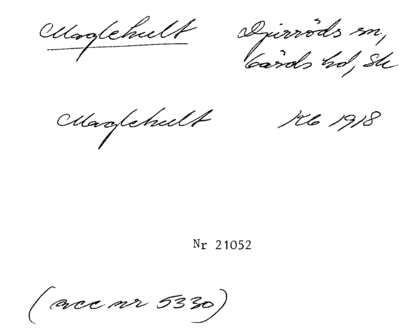 Maglehult Djurröds sn,
Gärds hd, Sk
Maglehult Kb 1918
Nr 21052
(acc nr 5330)